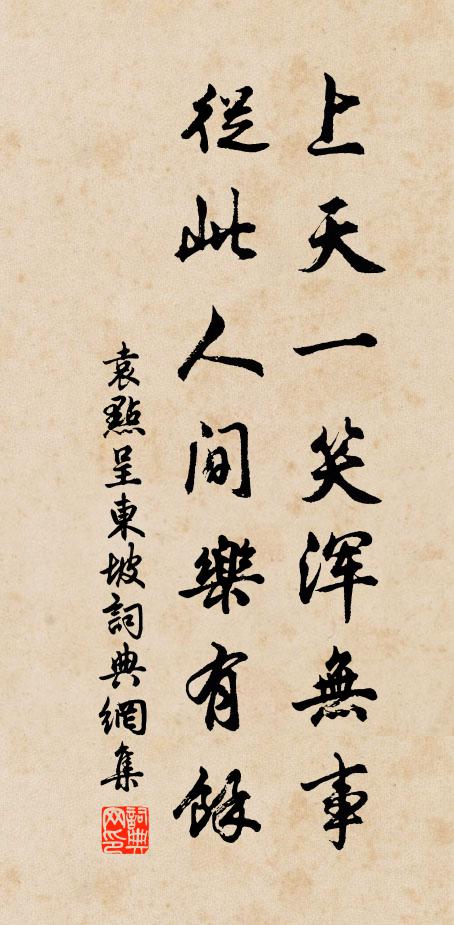 上天一笑渾無事
從此人間樂有餘
袁點呈東坡詞典網集
詞典网印